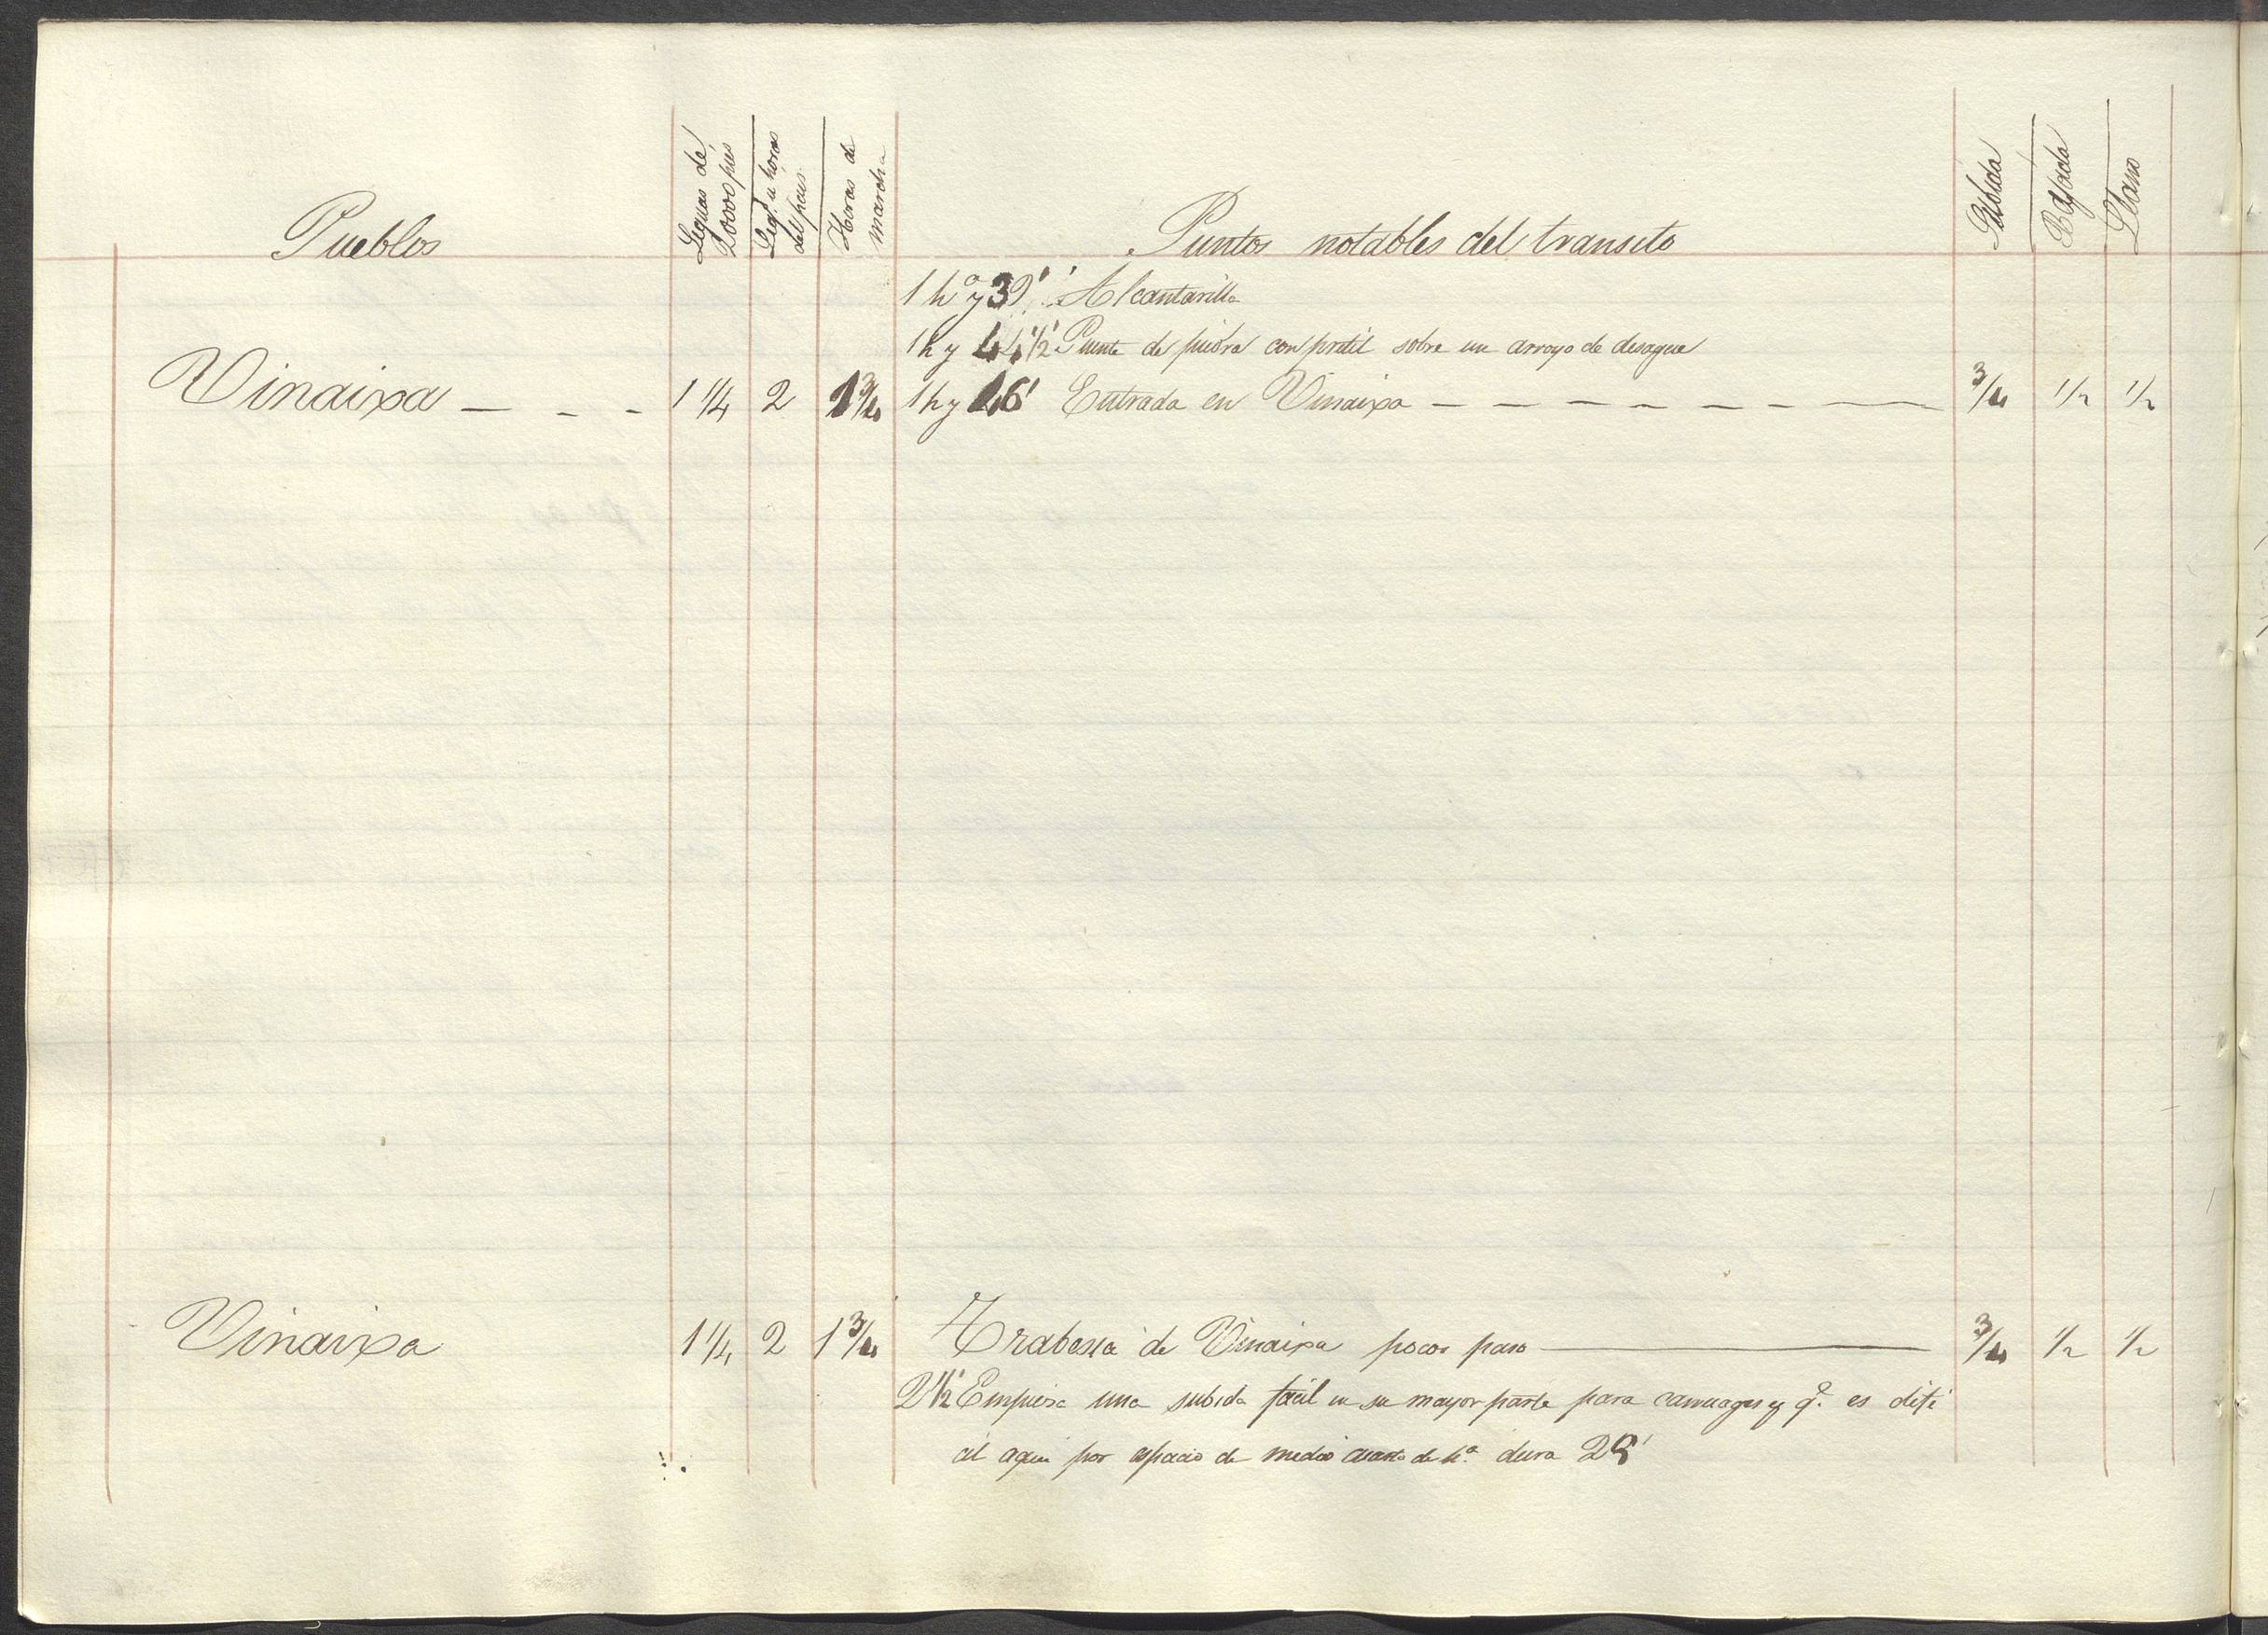 Pueblos Leguas de 20000 pies Leg.s u horas del pais Horas de marcha Puntos notables del transito Subida Bajada Llano
1 h.a y 39' Alcantarilla
1 h y 44'½ Puente de piedra con pretil sobre un arroyo de desague
Vinaixa — - - 1 ¼ 2 1 ¾ 1 h y 46' Entrada en Vinaixa — — — — — — — — ¾ ½ ½
Vinaixa 1 ¼ 2 1 ¾ Trabesia de Vinaixa pocos pasos — ¾ ½ ½
2'½ Empieza una subida fácil en su mayor parte para carruages y q.e es difi
cil aqui por espacio de medio cuarto de h.a dura 28'